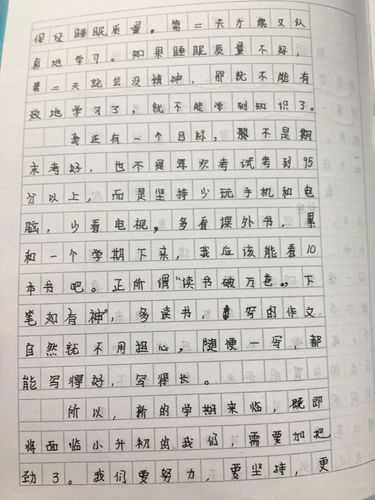 保经睡眠质量。第二天才能又认
真地学习。如果睡眠质量不好，
第二天就会没精神，那就不能有
效地学习了，就不能学到知识了。
还有一个目标，不是期
末考好，也不是每次考试考到95
分以上，而是坚持少玩手机和电
脑，少看电视。多看课外书，累
和一个学期下来，我应该能看10
本书吧。正所谓“读书破万卷，下
笔如有神”，多读书，写的作文
自然就不用担心，随便一写，都
能写得好，写得长。
所以，新的学期来临，既即
将面临小升初的我们，需要加把
劲了。我们要努力，要坚持，更